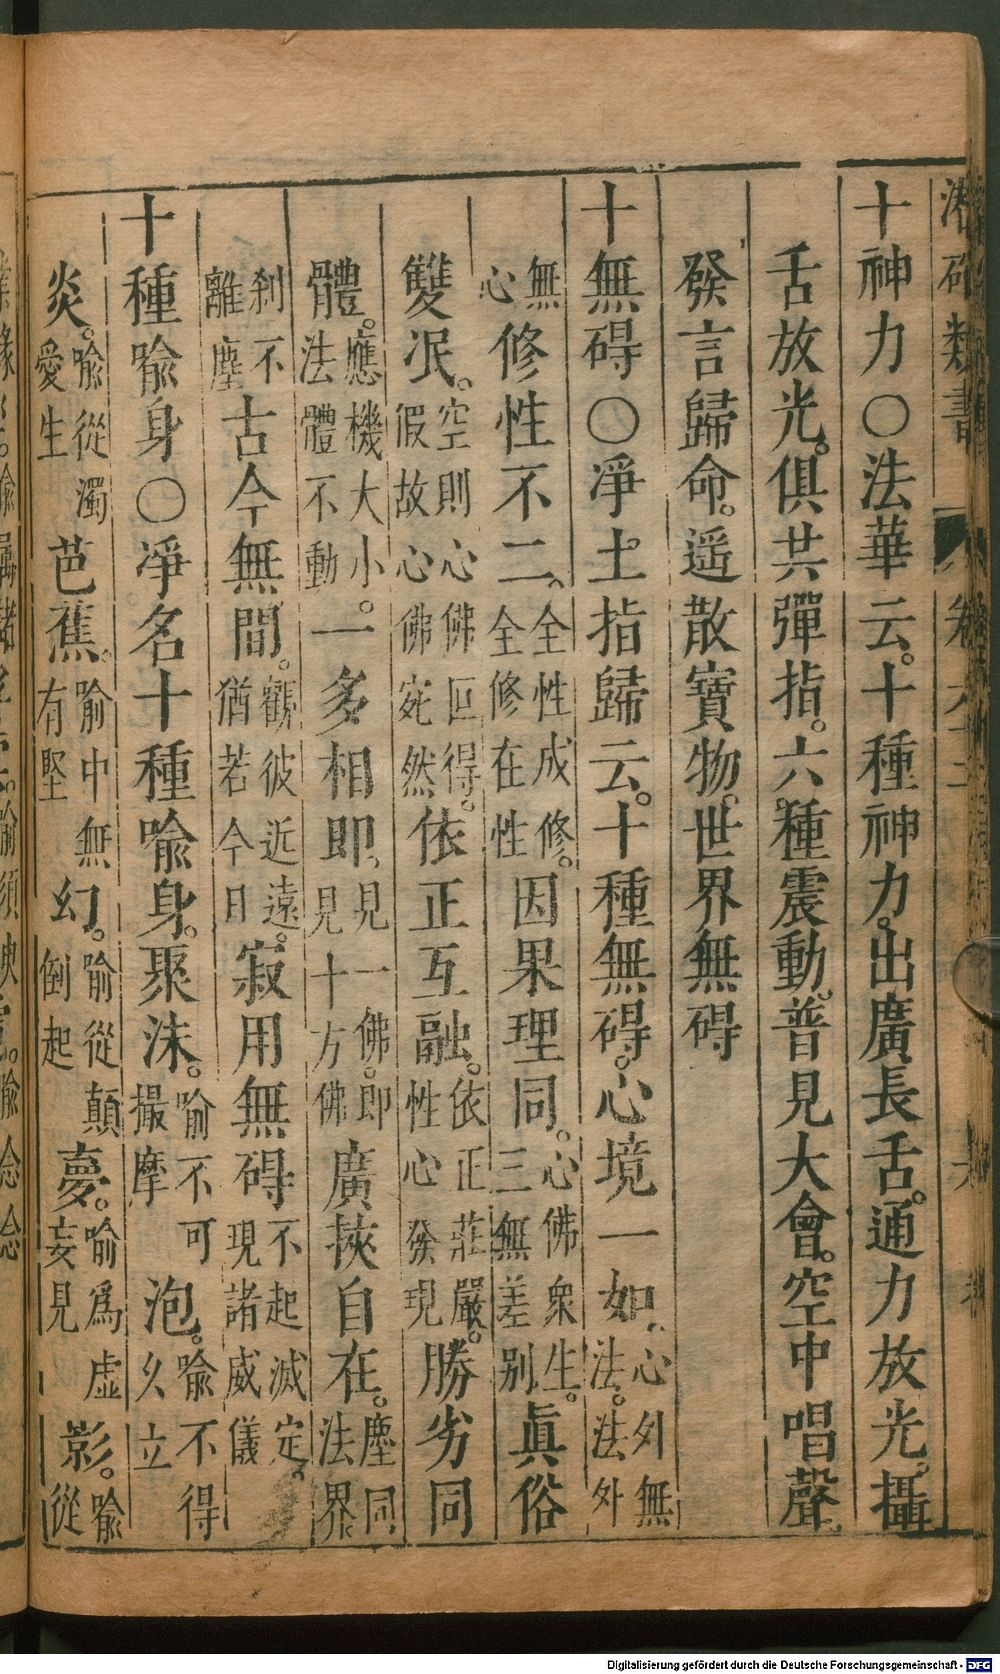 潛確類書 卷六十
十神力○法華云。十種神力。出廣長舌。通力放光。攝
舌放光。俱共彈指。六種震動。普見大會。空中唱聲
發言歸命。遥散寶物。世界無碍
十無碍○淨土指歸云。十種無碍。心境一如。心外無法。法外
無心修性不二。全性成修。全修在性因果理同。心佛衆生。三無差别眞俗
雙泯。空則心佛叵得。假故心佛宛然依正互融。依正莊嚴。性心發現勝劣同
體。應機大小。法體不動一多相即。見一佛。即見十方佛廣挾自在。塵同法界。
刹不離塵古今無間。觀彼近遠。猶若今日寂用無碍不起滅定。現諸威儀
十種喻身○淨名十種喻身。聚沫。喻不可撮摩泡。喻不得久立
炎。喻從濁愛生芭蕉。喻中無有堅幻。喻從顛倒起夢。喻爲虛妄見影。喻從
Digitalisierung gefördert durch die Deutsche Forschungsgemeinschaft - DFG